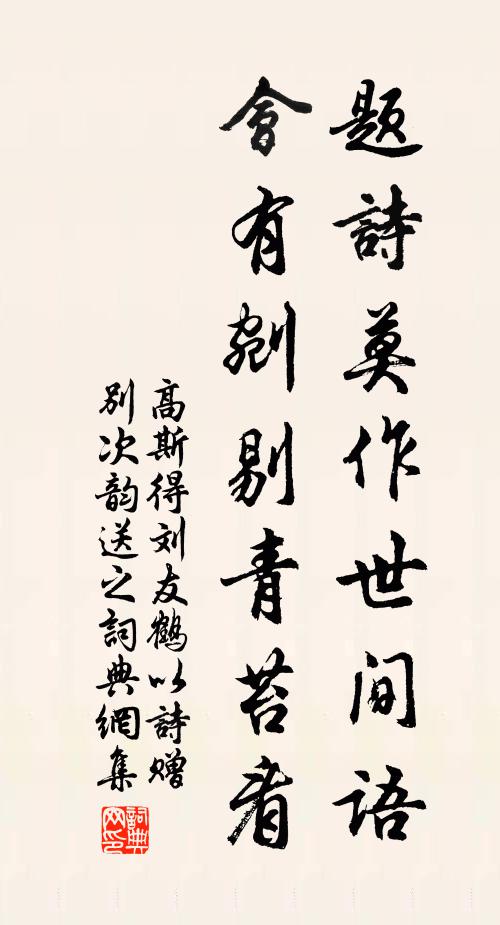 題詩莫作世間語
會有剜剔青苔看
高斯得刘友鶴以詩赠
别次韵送之詞典網集
詞典
网印